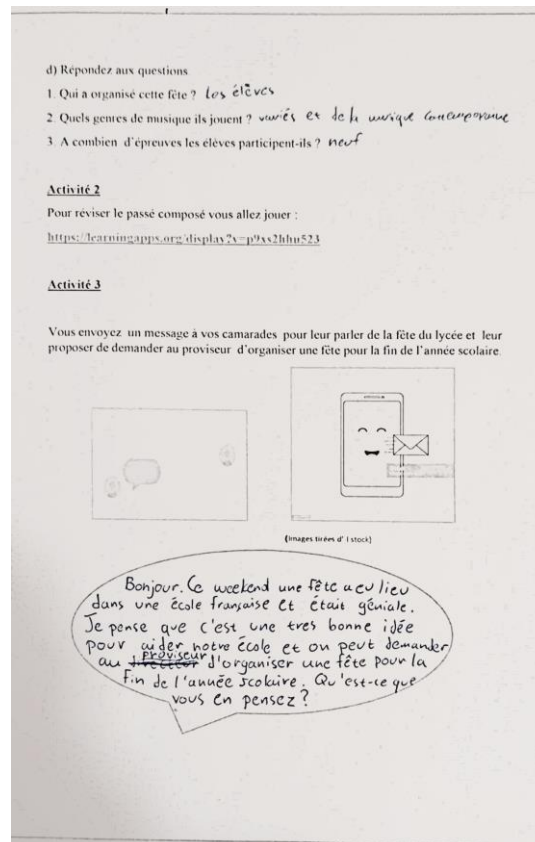 d) Répondez aux questions
1. Qui a organisé cette fête ? Los élèves
2. Quels genres de musique ils jouent ? variés et de la musique contemporaine
3. A combien d'épreuves les élèves participent-ils ? neuf
Activité 2
Pour réviser le passé composé vous allez jouer :
https://learningapps.org/display?v=p9xs2hhu523
Activité 3
Vous envoyez un message à vos camarades pour leur parler de la fête du lycée et leur
proposer de demander au proviseur d'organiser une fête pour la fin de l'année scolaire.
(Images tirées d' I stock)
Bonjour. Ce weekend une fête a eu lieu
dans une école française et était géniale.
Je pense que c'est une tres bonne idée
pour aider notre école et on peut demander
au proviseur d'organiser une fête pour la
fin de l'année scolaire. Qu'est-ce que
vous en pensez ?